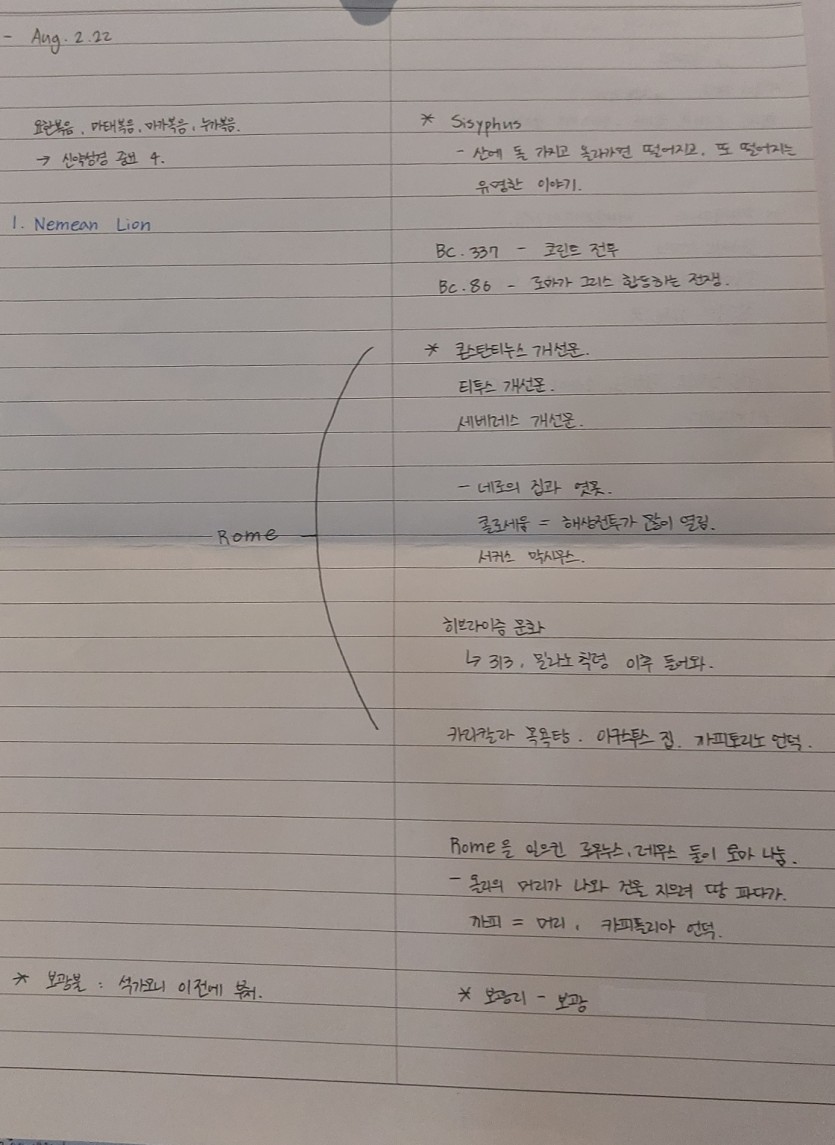 - Aug. 2. 22
요한복음, 마태복음, 마가복음, 누가복음.
→ 신약성경 중요 4.
1. Nemean Lion
* 보광불 : 석가모니 이전에 부처.
* Sisyphus
- 산에 돌 가지고 올라가면 떨어지고, 또 떨어지는
유명한 이야기.
BC. 337 - 코린트 전투
BC. 86 - 로마가 그리스 합동하는 전쟁.
Rome
* 콘스탄티누스 개선문.
티투스 개선문.
세베레스 개선문.
- 네로의 집과 연못.
콜로세움 = 해상전투가 많이 열림.
서커스 막시무스.
히브라이즘 문화
↳ 313, 밀라노 칙령 이후 들어와.
카라칼라 목욕탕. 아구스투스 집. 까피토리노 언덕.
Rome을 일으킨 로무누스, 레무스 둘이 로마 나눔.
- 올라의 머리가 나와 건물 지으려 땅 파다가.
까피 = 머리, 카피톨리아 언덕.
* 보광리 - 보광